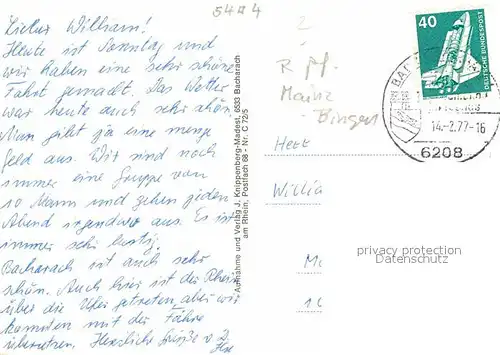 5444
Lieber William!
Heute ist Sonntag und
wir haben eine sehr schöne
Fahrt gemacht. Das Wetter
war heute auch sehr schön.
Man gibt ja eine menge
Geld aus. Wir sind noch
immer eine Gruppe von
10 Mann und gehen jeden
Abend irgendwo aus. Es ist
immer sehr lustig.
Bacharach ist auch sehr
schön. Auch hier ist der Rhein
über die Ufer getreten, aber wir
konnten mit der Fähre
übersetzen. Herzliche Grüße v.
Aufnahme und Verlag J. Knippenberg-Madest, 6533 Bacharach
am Rhein, Postfach 88 · Nr. C 72/5
2
R pf.
Mainz
Bingen
40
DEUTSCHE BUNDESPOST
BAC
14.-2.77-16
6208
Herr
Willia
privacy protection
Datenschutz